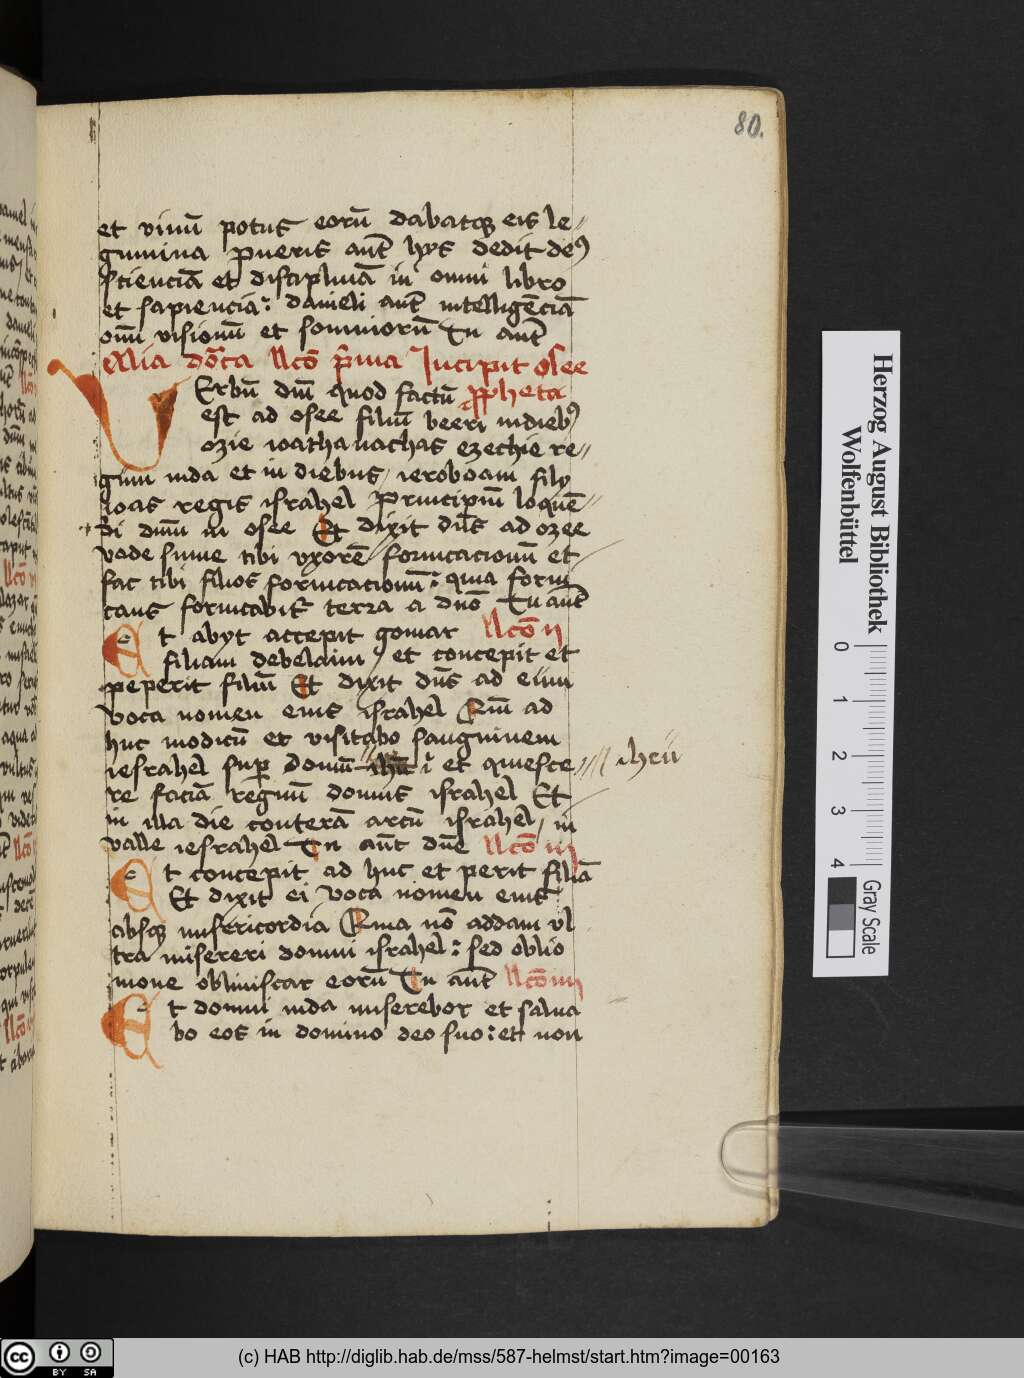 80.
et vinū potus eorū dabatqꝫ eis le〃
gumina pueris aut̄ hys dedit deꝰ
scienciā et disciplinā in omni libro
et sapienciā: danieli aut̄ intelligēciā
om̄ visionū et somniorū Tu aut̄
dōca llcō p̄ma Incipit osee
VErbū dn̄i quod factū ꝓpheta
est ad osee filiū beeri in diebꝰ
ozie ioathan achas ezechie re〃
gum iuda et in diebus ieroboam fily
ioas regis israhel principiū loquē〃
di dn̄m in osee Et dixit dn̄s ad ozee
vade sume tibi vxorē fornicacionū et
fac tibi filios fornicacionū: quia forni
cans fornicabit̄ terra a dn̄o Tu aut̄
Et abyt accepit gomar llcō ii
filiam debelaim et concepit et
peperit filiū Et dixit dn̄s ad eum
voca nomen eius israhel Qm̄ ad
huc modicū et visitabo sanguinem
iesrahel suꝑ domū et quiesce〃 iheu
re faciā regnū domus israhel Et
in illa die conterā arcū israhel in
valle iesrahel Tu aut̄ dn̄e llcō iii
Et concepit ad huc et perit filiā
Et dixit ei voca nomen eius
absqꝫ misericordia Quia nō addam vl
tra misereri domui israhel: sed oblio
mone obliuiscar eorū Tu aut̄ llcō iiii
Et domui iuda miserebor et salua
bo eos in domino deo suo: et non
Herzog August Bibliothek
Wolfenbüttel
0 1 2 3 4
Gray Scale
cc BY SA
(c) HAB http://diglib.hab.de/mss/587-helmst/start.htm?image=00163